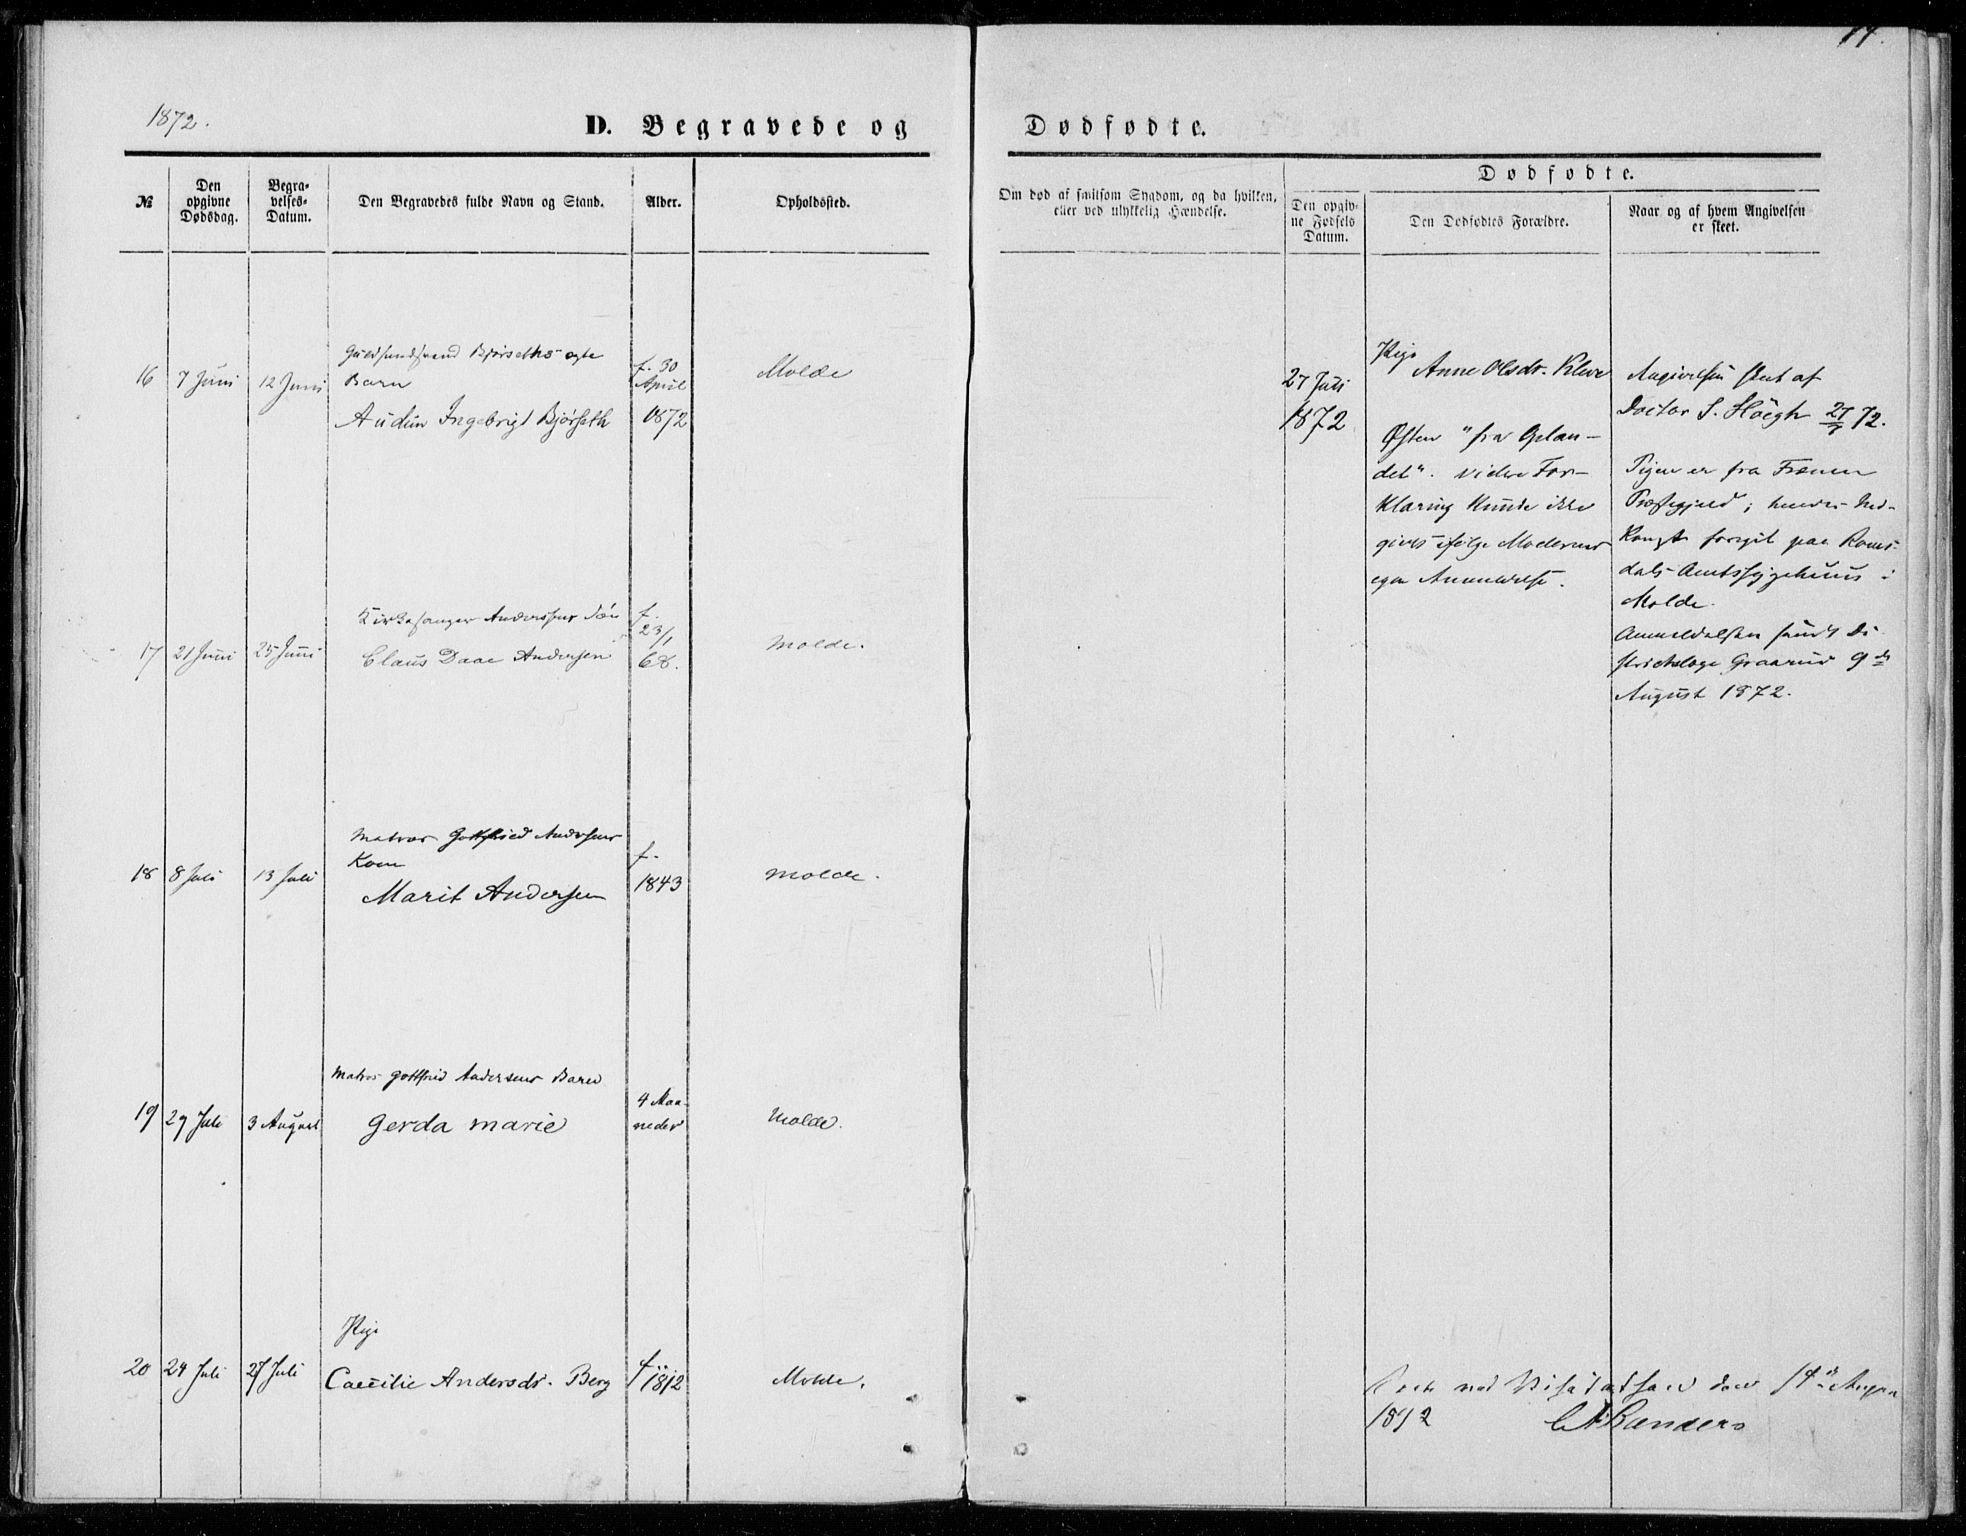 1872.
D. Begravede og
№
Den opgivne Dødsdag.
Begravelses-Datum.
Den Begravedes fulde Navn og Stand.
Alder.
Opholdssted.
16 7 Juni 12 Juni Bjørseths ægte Barn f. 30 April 1872 Molde
Audun Ingebrigt Bjørseth
17 21 Juni 25 Juni Kirkesanger Anderssens Søn f. 23/1 68. Molde.
Claus Daae Andersen
18 8 Juli 13 Juli Matros Gottfried Andersens Kone f. 1843 Molde.
Marit Andersen
19 29 Juli 3 August Matros Gottfried Andersens Barn 4 Maaneder Molde.
Gerda Marie
20 24 Juli 27 Juli Pige f. 1812 Molde.
Caecilie Andersdr. Berg
Dødfødte.
Om død af smitsom Sygdom, og da hvilken,
eller ved ulykkelig Hændelse.
Dødfødte.
Den opgivne Fødsels Datum.
Den Dødfødtes Forældre.
Naar og af hvem Angivelsen
er skeet.
27 Juli
1872
Pige
Anne Olsdr.
"fra Oplan-
det". videre For-
klaring kunde ikke
gives ifølge Moderens
egen Anmeldelse.
Angivelsen skeet af
Doctor S. Høegh 27/7 72.
Pigen er fra Frænen
Præstegjeld; hendes Ned-
komst foregik paa Roms-
dals Amtssygehuus i
Molde.
Anmeldelsen sendt Di-
strictslæge Graarud 9de
August 1872.
ved Visitatsen den 14de
1872